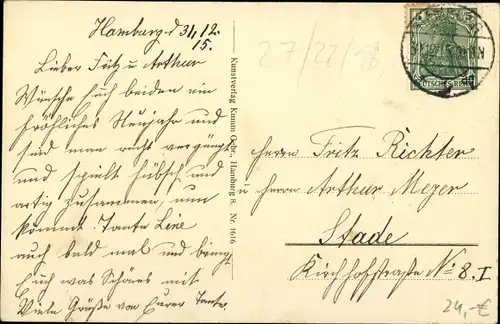 Hamburg d 31/12.
15.
Lieber Fritz u Arthur
Wünsche Euch beiden ein
fröhliches Neujahr und
seid man recht vergnügt
und spielt hübsch und
artig zusammen, nun
kommt Tante Line
auch bald mal und bringt
Euch was Schönes mit
Viele Grüße von Eurer Tante
Kunstverlag Knum Gebr., Hamburg 8. Nr. 1616
27/22/18
DEUTSCHES REICH
Herrn Fritz Richter
u Herrn Arthur Meyer
Stade
Kirchhofstraße No 8. I
24,-€